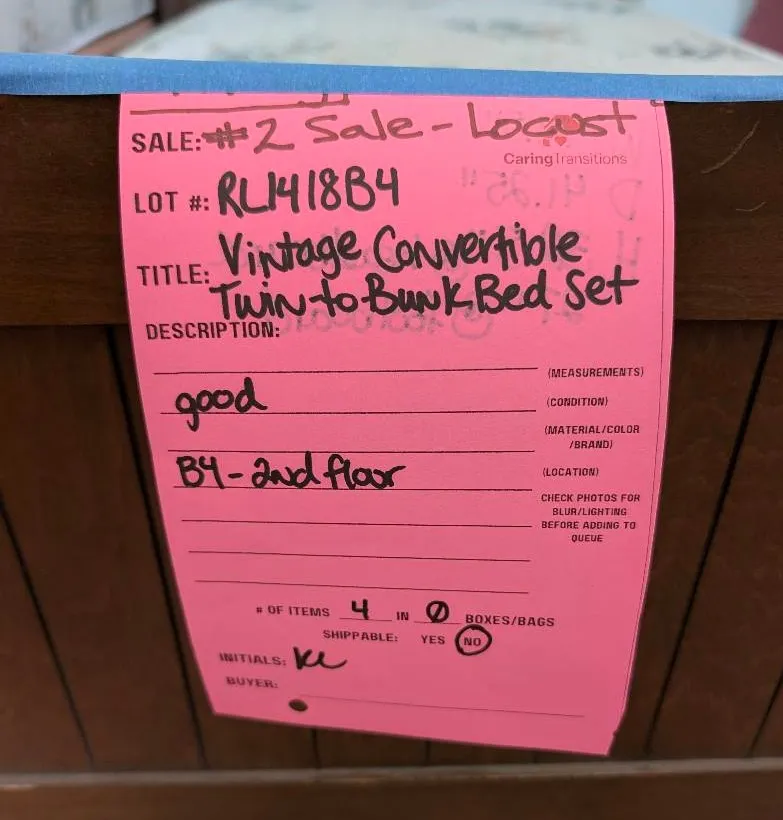 SALE: #2 Sale - Locust
CaringTransitions
LOT #: RL1418B4
TITLE: Vintage Convertible
Twin-to-Bunk Bed Set
DESCRIPTION:
(MEASUREMENTS)
good (CONDITION)
(MATERIAL/COLOR
/BRAND)
B4-2nd floor (LOCATION)
CHECK PHOTOS FOR
BLUR/LIGHTING
BEFORE ADDING TO
QUEUE
# OF ITEMS 4 IN 0 BOXES/BAGS
SHIPPABLE: YES NO
INITIALS: KL
BUYER: